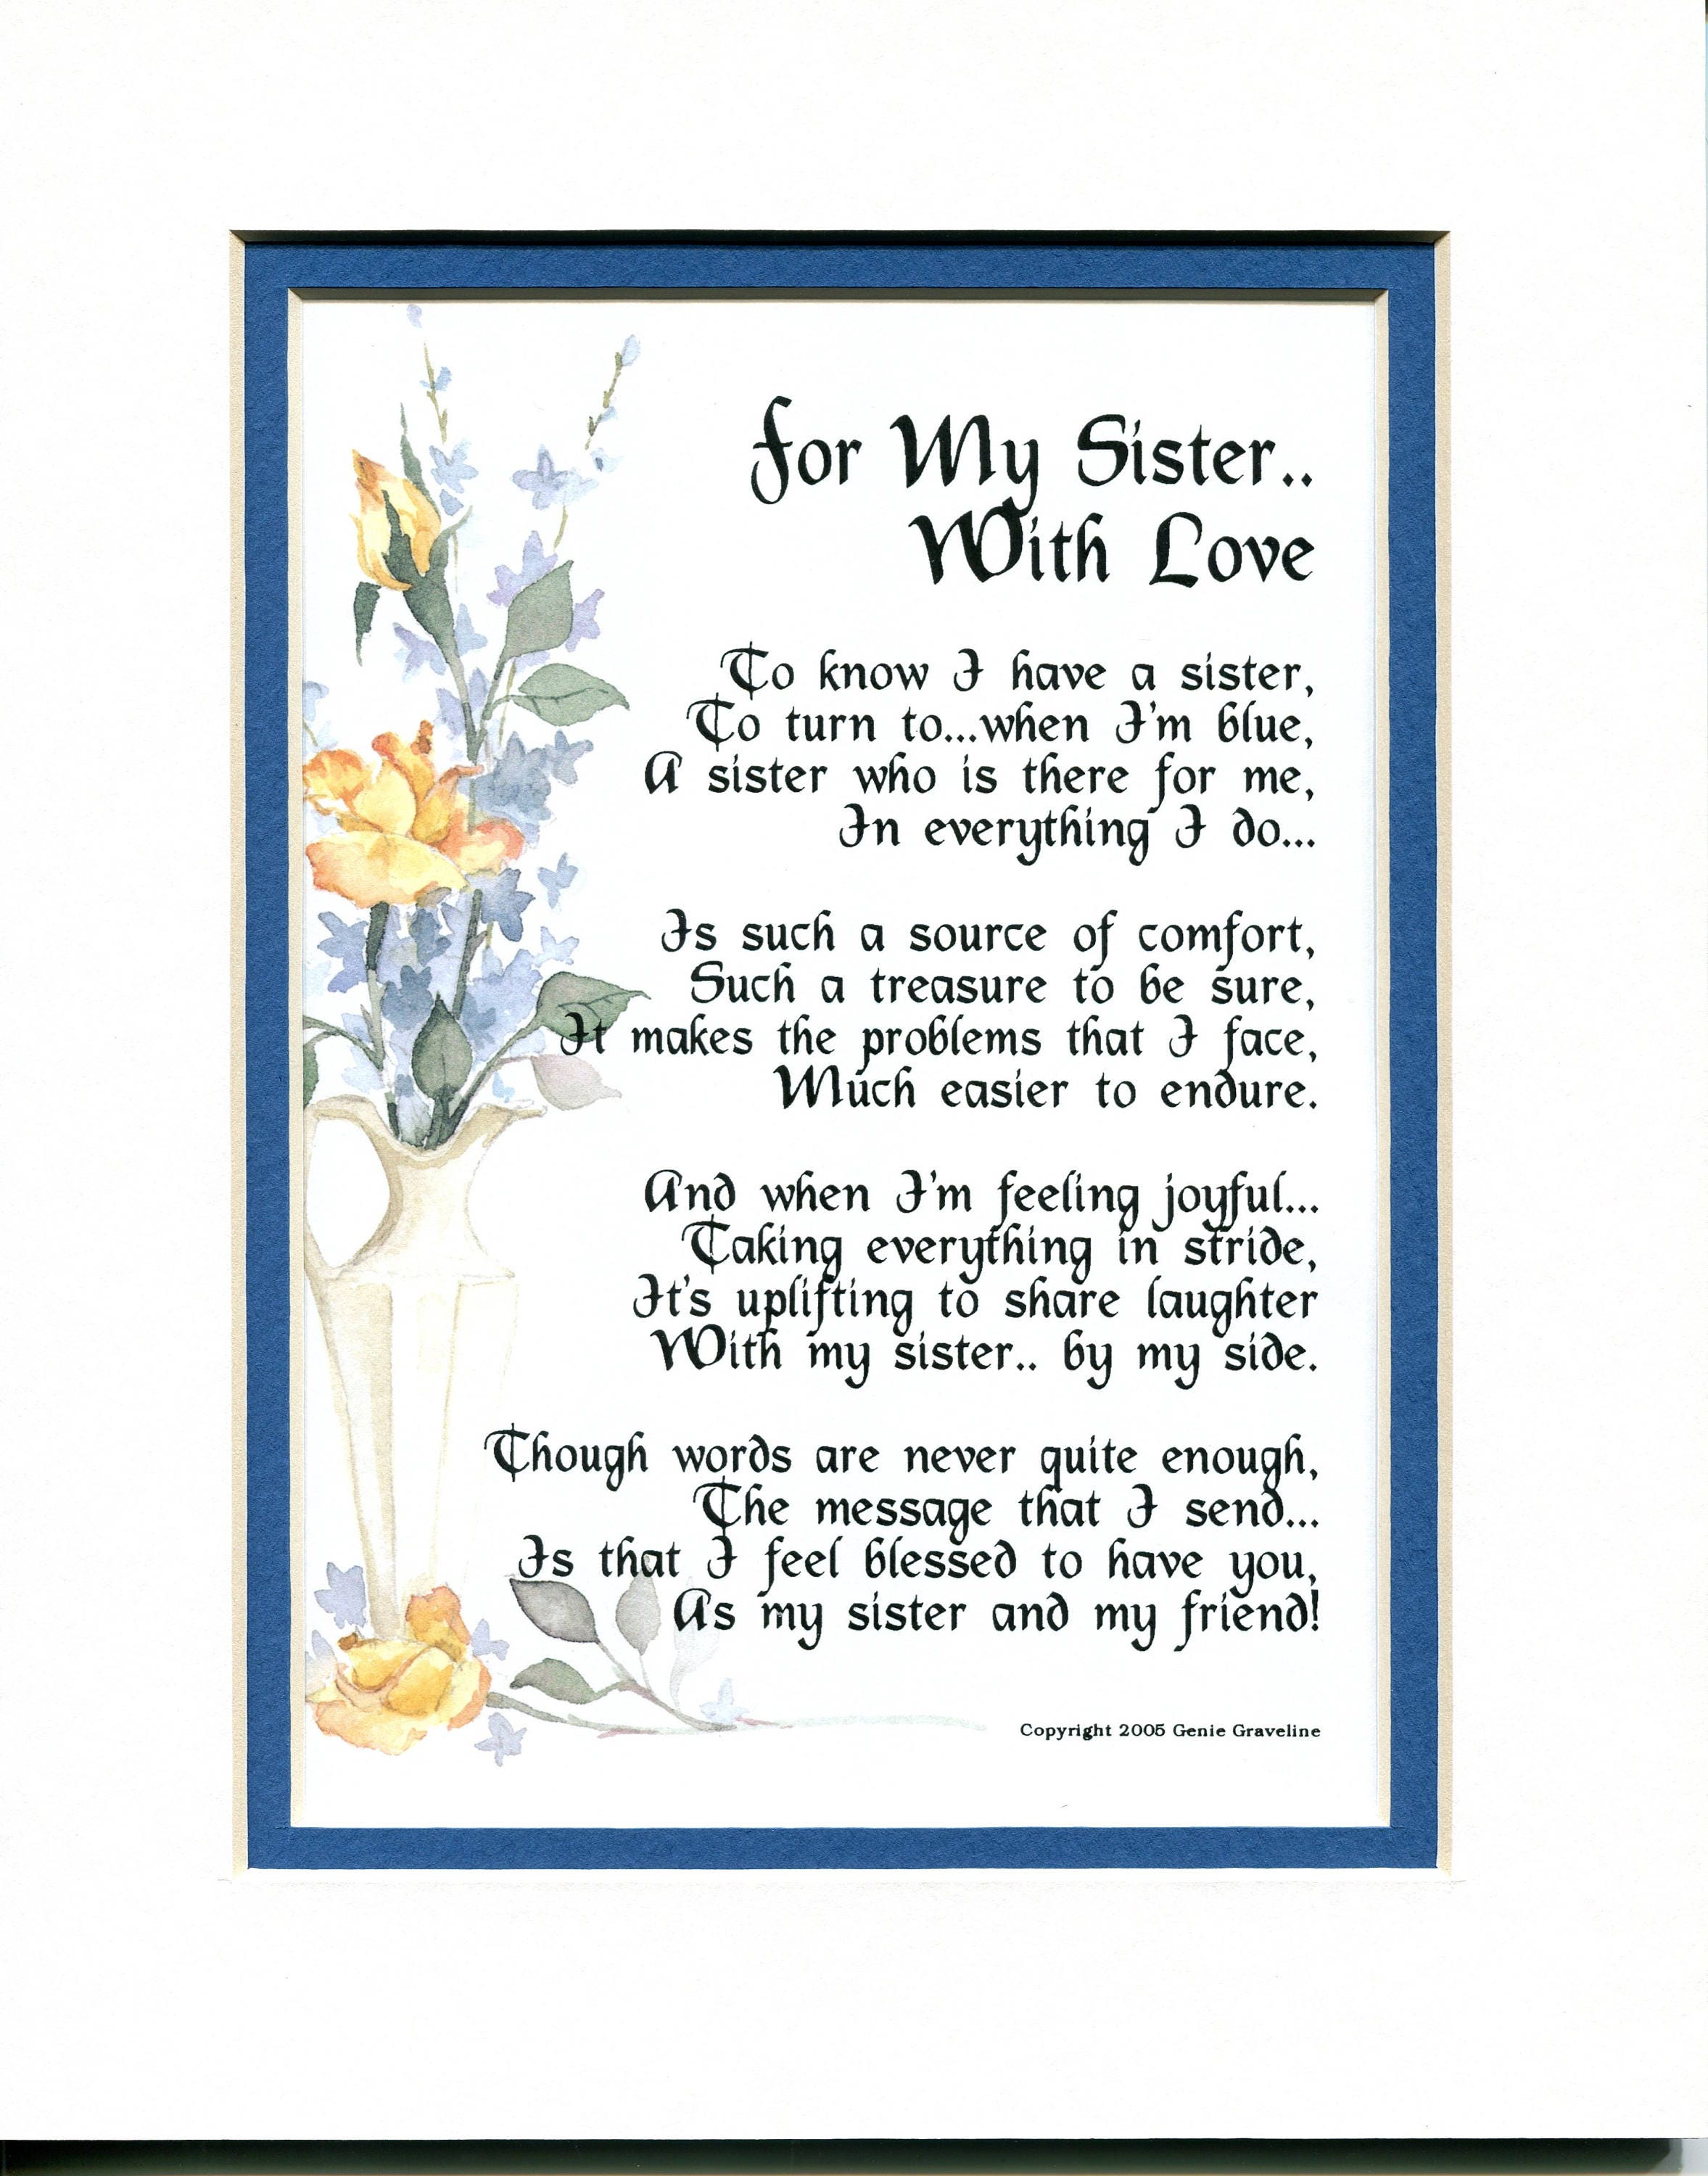 For My Sister..
With Love
To know I have a sister,
To turn to...when I'm blue,
A sister who is there for me,
In everything I do...
Is such a source of comfort,
Such a treasure to be sure,
It makes the problems that I face,
Much easier to endure.
And when I'm feeling joyful...
Taking everything in stride,
It's uplifting to share laughter
With my sister.. by my side.
Though words are never quite enough,
The message that I send...
Is that I feel blessed to have you,
As my sister and my friend!
Copyright 2005 Genie Graveline